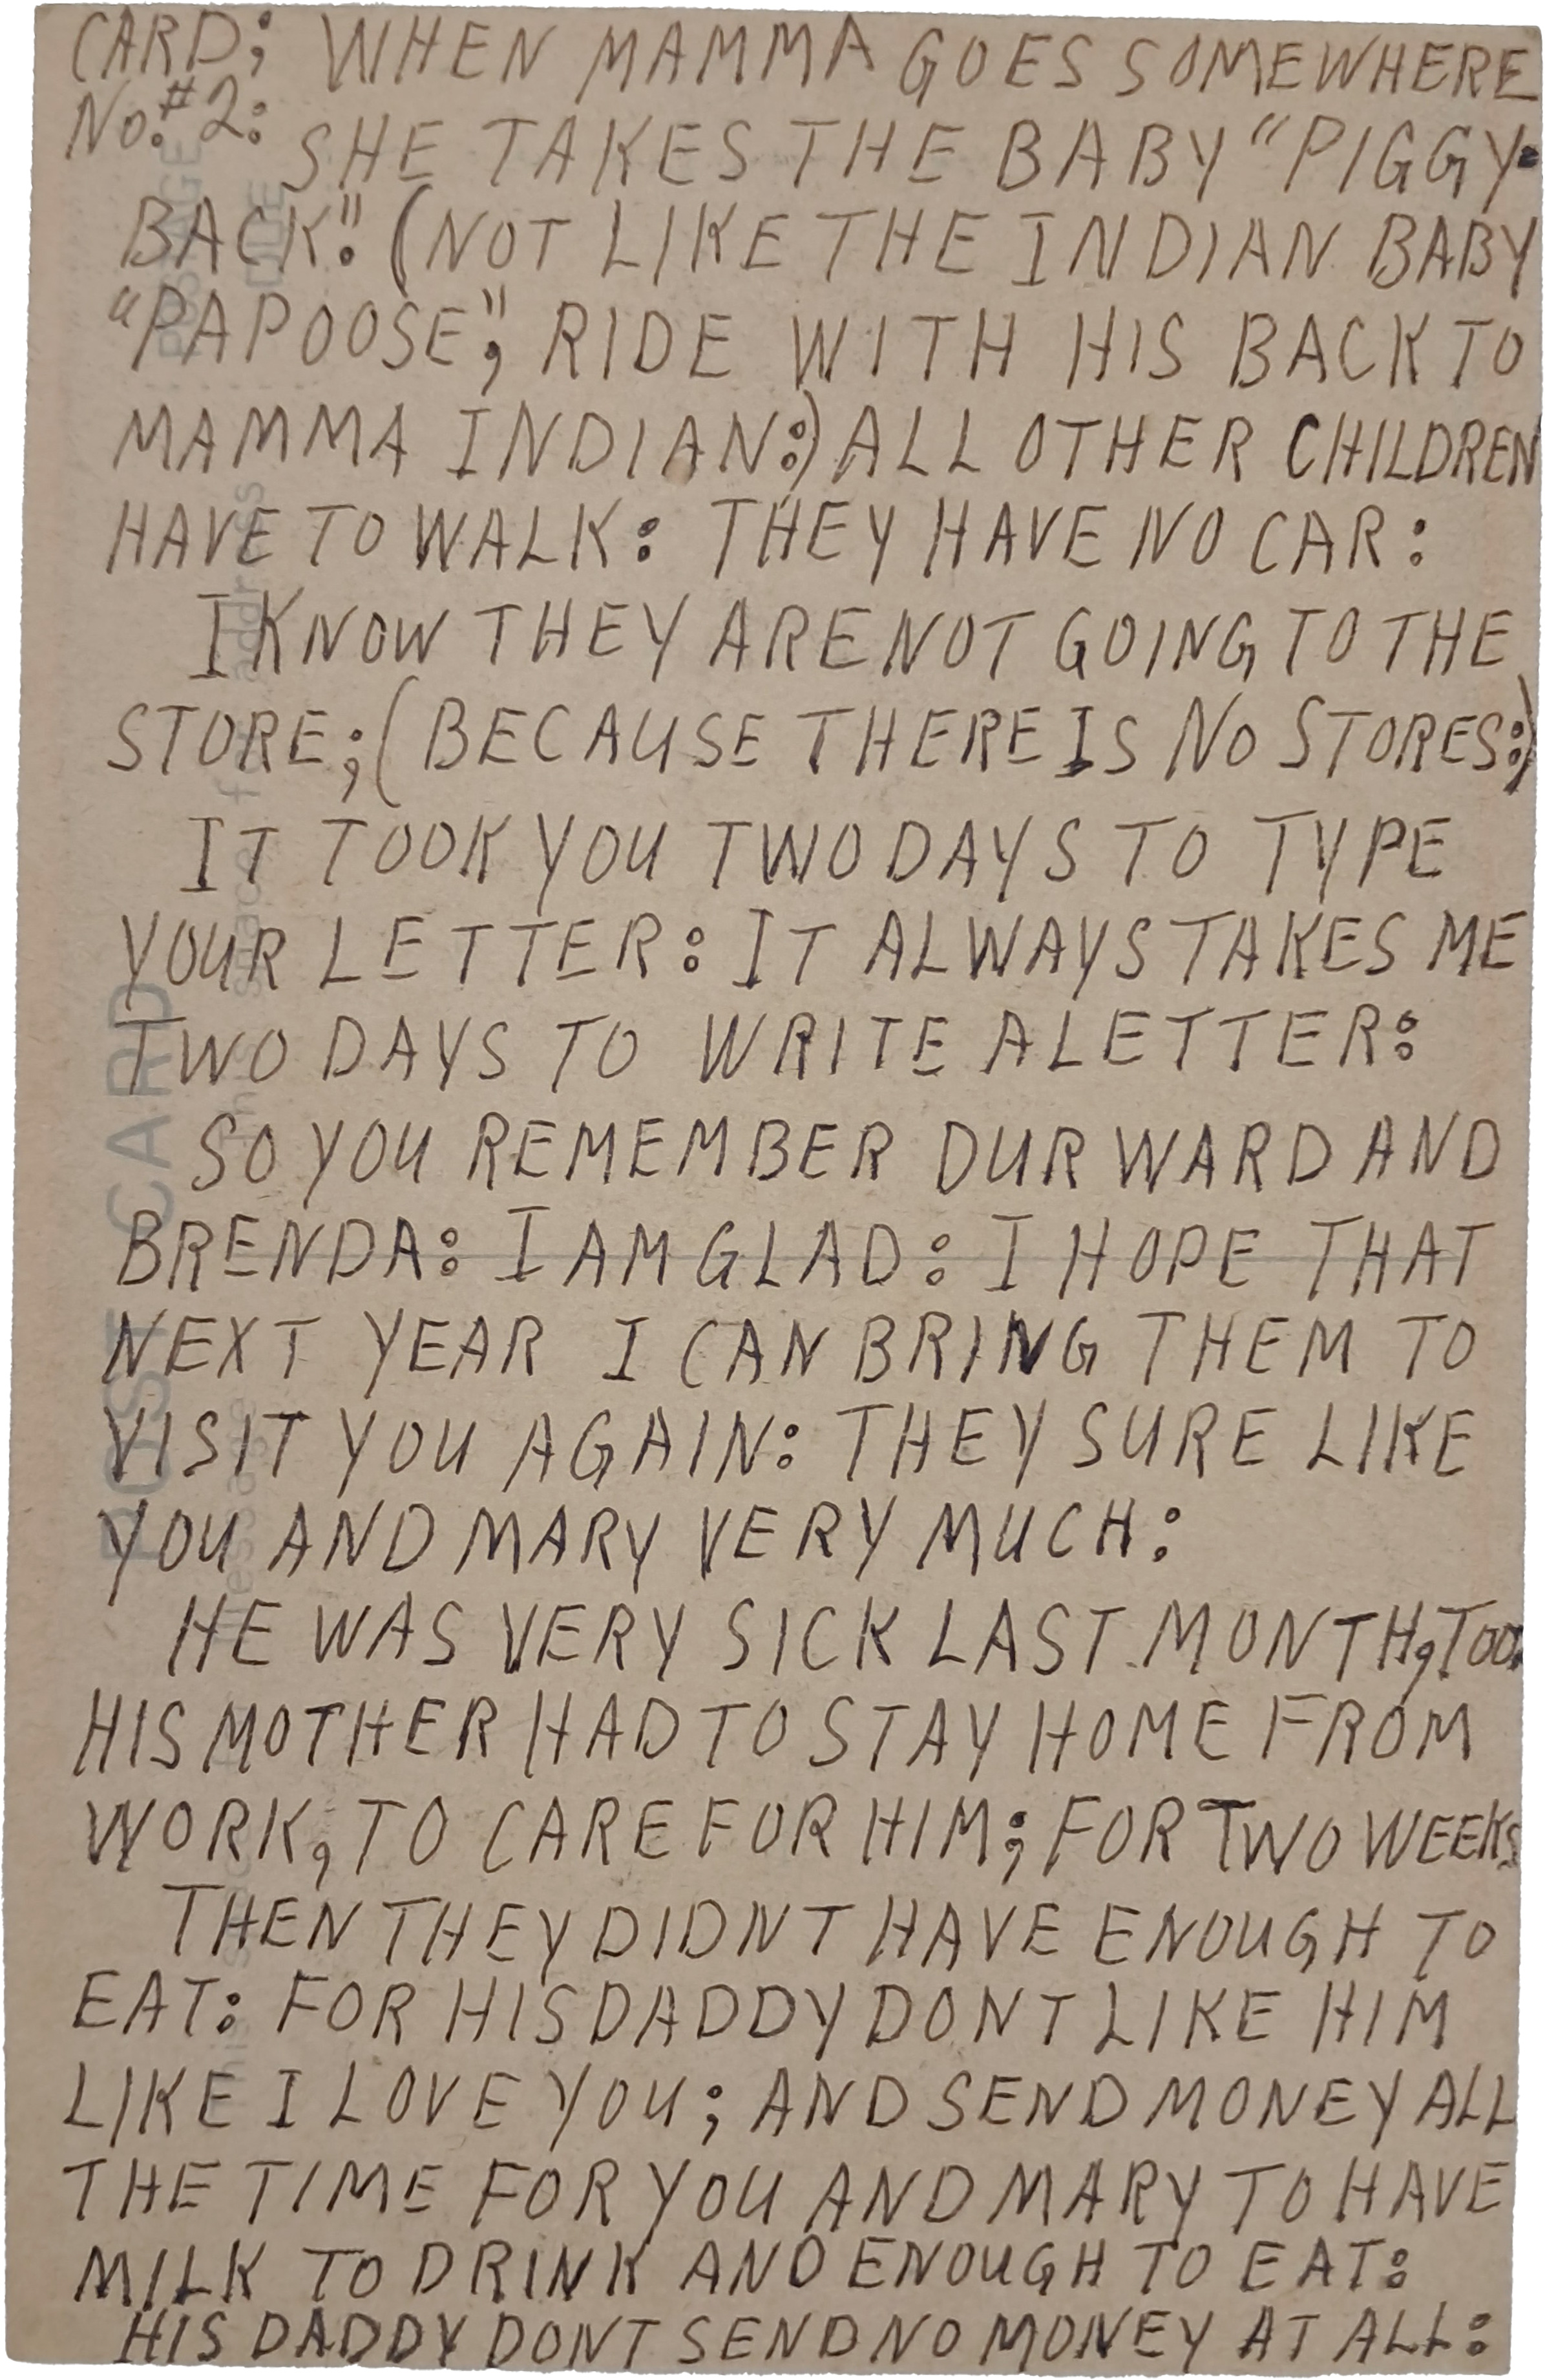 CARD; WHEN MAMMA GOES SOMEWHERE
No.#2: SHE TAKES THE BABY "PIGGY-
BACK". (NOT LIKE THE INDIAN BABY
"PAPOOSE", RIDE WITH HIS BACK TO
MAMMA INDIAN:) ALL OTHER CHILDREN
HAVE TO WALK: THEY HAVE NO CAR:
I KNOW THEY ARE NOT GOING TO THE
STORE; (BECAUSE THERE IS NO STORES:)
IT TOOK YOU TWO DAYS TO TYPE
YOUR LETTER: IT ALWAYS TAKES ME
TWO DAYS TO WRITE A LETTER:
SO YOU REMEMBER DURWARD AND
BRENDA: I AM GLAD: I HOPE THAT
NEXT YEAR I CAN BRING THEM TO
VISIT YOU AGAIN: THEY SURE LIKE
YOU AND MARY VERY MUCH:
HE WAS VERY SICK LAST MONTH, TOO.
HIS MOTHER HAD TO STAY HOME FROM
WORK, TO CARE FOR HIM; FOR TWO WEEKS
THEN THEY DIDNT HAVE ENOUGH TO
EAT: FOR HIS DADDY DONT LIKE HIM
LIKE I LOVE YOU; AND SEND MONEY ALL
THE TIME FOR YOU AND MARY TO HAVE
MILK TO DRINK AND ENOUGH TO EAT:
HIS DADDY DONT SEND NO MONEY AT ALL:
POST CARD